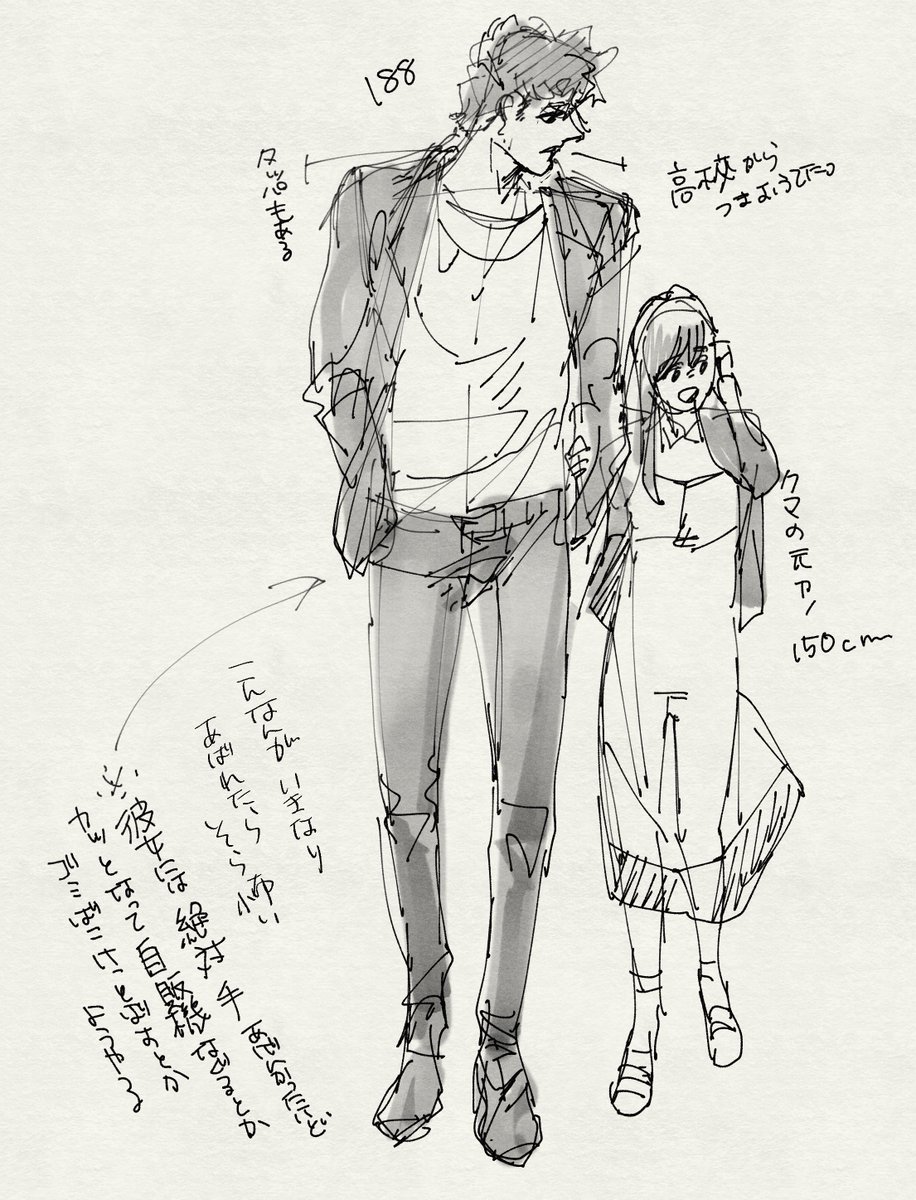 188
タッパもある
高校から
つきあってた
クマの元カノ
150cm
こんなんが いきなり
あばれたら そら怖い
※彼女には 絶対 手 あげなかったけど
カッとなって 自販機 なぐるとか
ゴミばこけとばすとか
よくやる